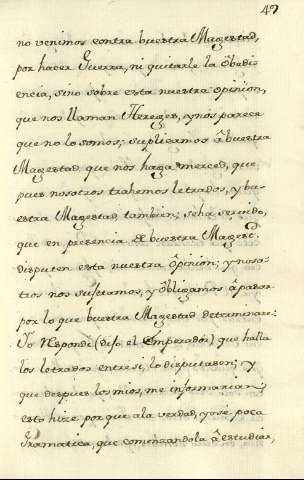 47
no venimos contra buestra Magestad,
por hacer Guerra, ni quitarle la obedi-
encia, sino sobre esta nuestra opinion,
que nos llaman Hereges, y nos parece
que no lo somos; suplicamos â buestra
Magestad que nos haga merced, que
pues nosotros trahemos letrados, y bu-
estra Magestad tambien; sehâ servido,
que en presencia de buestra Magestd.
disputen esta nuestra opinion; y noso-
tros nos sujetamos, y obligamos â pasar
por lo que buestra Magestad determinare:
Yo Respondi (dijo el Emperador) que hallâ
los letrados entre si, lo disputasen; y
que despues los mios, me informarian;
esto hice por que a la verdad, yo se poca
Gramatica, que comenzandola â estudiar,